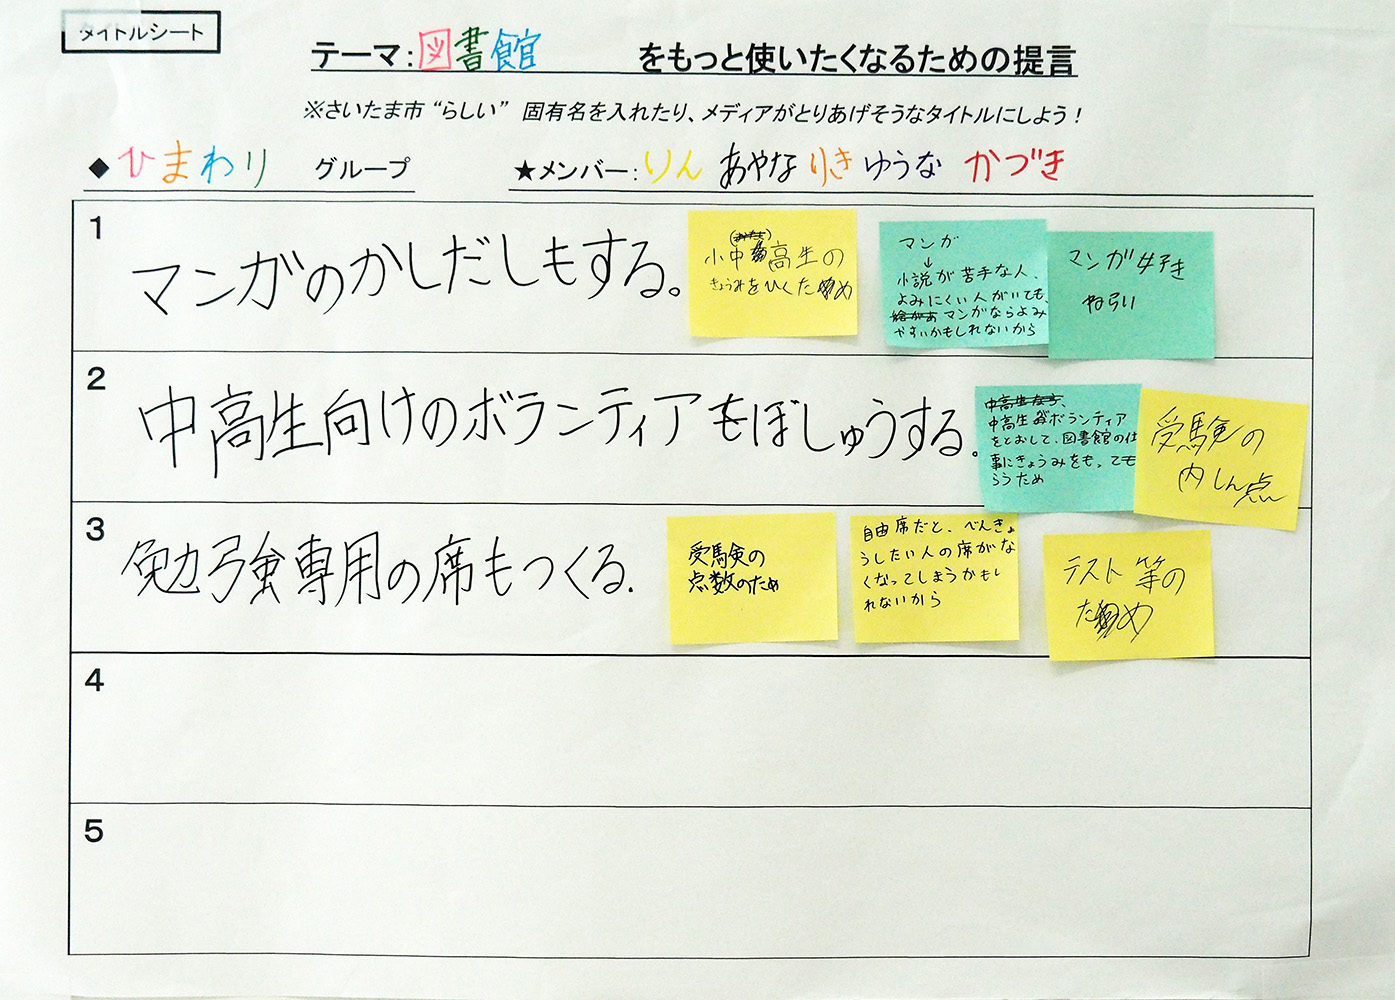 タイトルシート
テーマ:図書館 をもっと使いたくなるための提言
※さいたま市“らしい” 固有名を入れたり、メディアがとりあげそうなタイトルにしよう!
◆ひまわり グループ ★メンバー:りん あやな りき ゆうな かづき
1
マンガのかしだしもする。
小中高生の
きょうみをひくため
マンガ
↓
小説が苦手な人、
よみにくい人がいても、
マンガならよみ
やすいかもしれないから
マンガ好き
ねらい
2
中高生向けのボランティアもぼしゅうする。
中高生がボランティア
をとおして、図書館の仕
事にきょうみをもっても
らうため
受験の
内しん点
3
勉強専用の席もつくる.
受験の
点数のため
自由席だと、べんきょ
うしたい人の席がな
くなってしまうかもし
れないから
テスト等の
ため
4
5